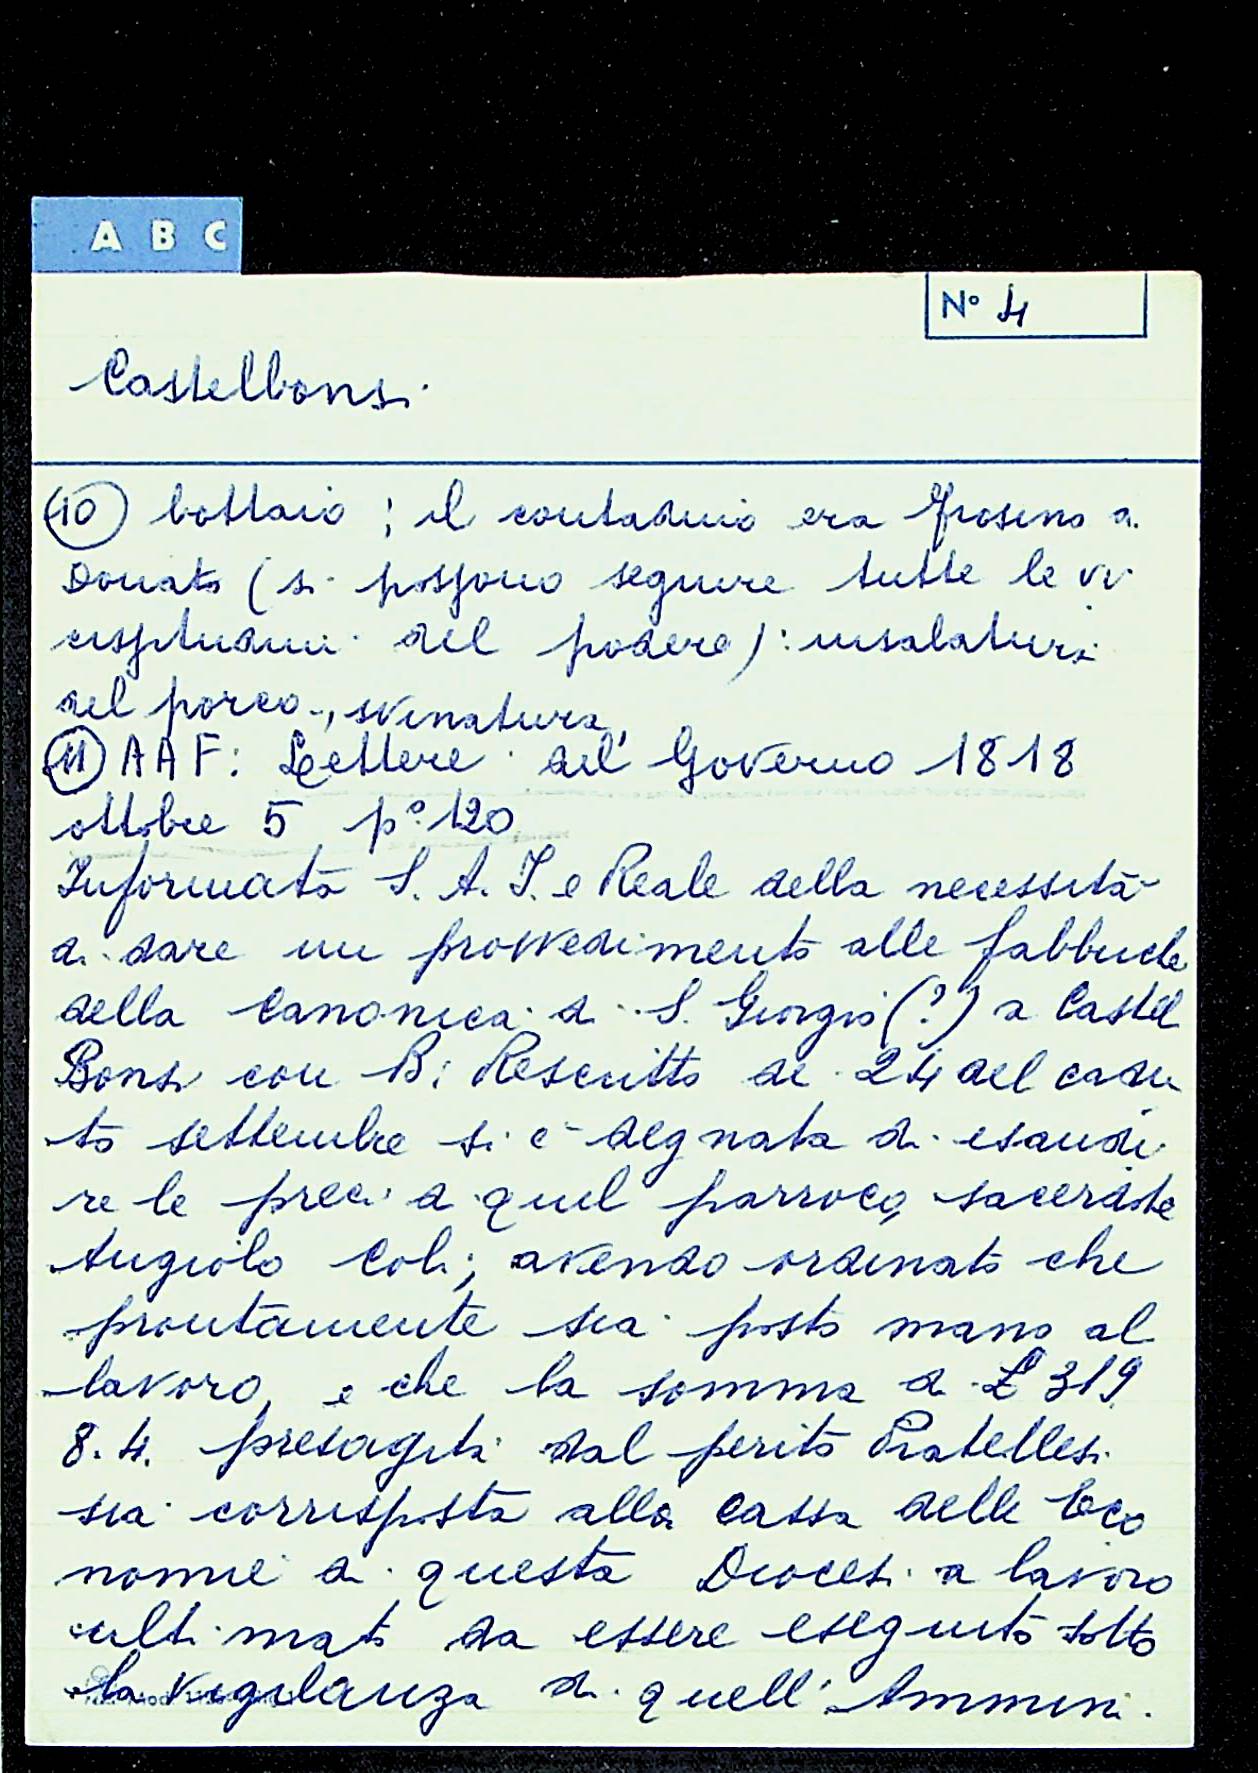 A B C
N° 4
Castelbonsi
(10) bottaio; il contadino era Frosino di
Donato (si possono seguire tutte le vi
cissitudini del podere): insalatura
del porco, svinatura,
(11) AAF: Lettere del Governo 1818
ottobre 5 p° 120
Informata S. A. I. e Reale della necessità
di dare un provvedimento alle fabbriche
della canonica di S. Giorgio (?) a Castel
Bonsi con R; Rescritto de 24 del cadu
to settembre si è degnata di esaudi
re le preci di quel parroco, sacerdote
Angiolo Coli; avendo ordinato che
prontamente sia posto mano al
lavoro, e che la somma di £ 319
8.4. presagita dal perito Pratellesi
sia corrisposta alla cassa delle Eco
nomie di questa Diocesi a lavoro
ultimato da essere eseguito sotto
la vigilanza di quell'Ammini.